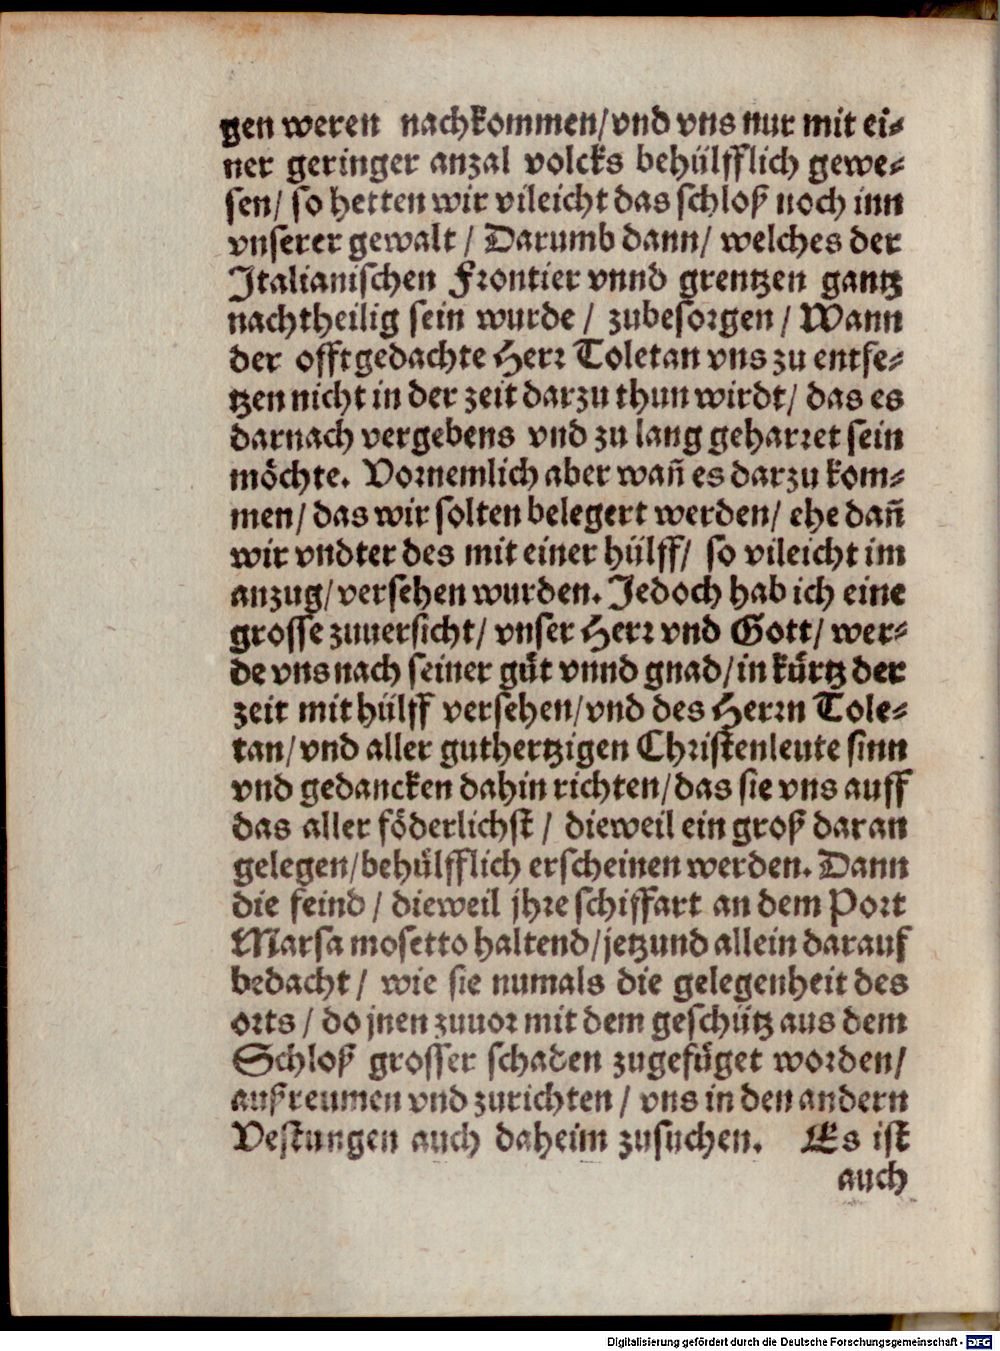 gen weren nachkommen/vnd vns nur mit ei⸗
ner geringer anzal volcks behülfflich gewe⸗
sen/ so hetten wir vileicht das schloß noch inn
vnserer gewalt / Darumb dann/ welches der
Italianischen Frontier vnnd grentzen gantz
nachtheilig sein wurde / zubesorgen / Wann
der offtgedachte Herr Toletan vns zu entse⸗
tzen nicht in der zeit darzu thun wirdt/ das es
darnach vergebens vnd zu lang geharret sein
möchte. Vornemlich aber wañ es darzu kom⸗
men/ das wir solten belegert werden/ ehe dañ
wir vndter des mit einer hülff/ so vileicht im
anzug/versehen wurden. Jedoch hab ich eine
grosse zuuersicht/ vnser Herr vnd Gott/ wer⸗
de vns nach seiner güt vnnd gnad/in kürtz der
zeit mit hülff versehen/vnd des Herrn Tole⸗
tan/vnd aller guthertzigen Christenleute sinn
vnd gedancken dahin richten/das sie vns auff
das aller föderlichst / dieweil ein groß daran
gelegen/behülfflich erscheinen werden. Dann
die feind / dieweil jhre schiffart an dem Port
Marsa mosetto haltend/jetzund allein darauf
bedacht / wie sie numals die gelegenheit des
orts / do jnen zuuor mit dem geschütz aus dem
Schloß grosser schaden zugefüget worden/
außreumen vnd zurichten / vns in den andern
Vestungen auch daheim zusuchen. Es ist
auch
Digitalisierung gefördert durch die Deutsche Forschungsgemeinschaft - DFG